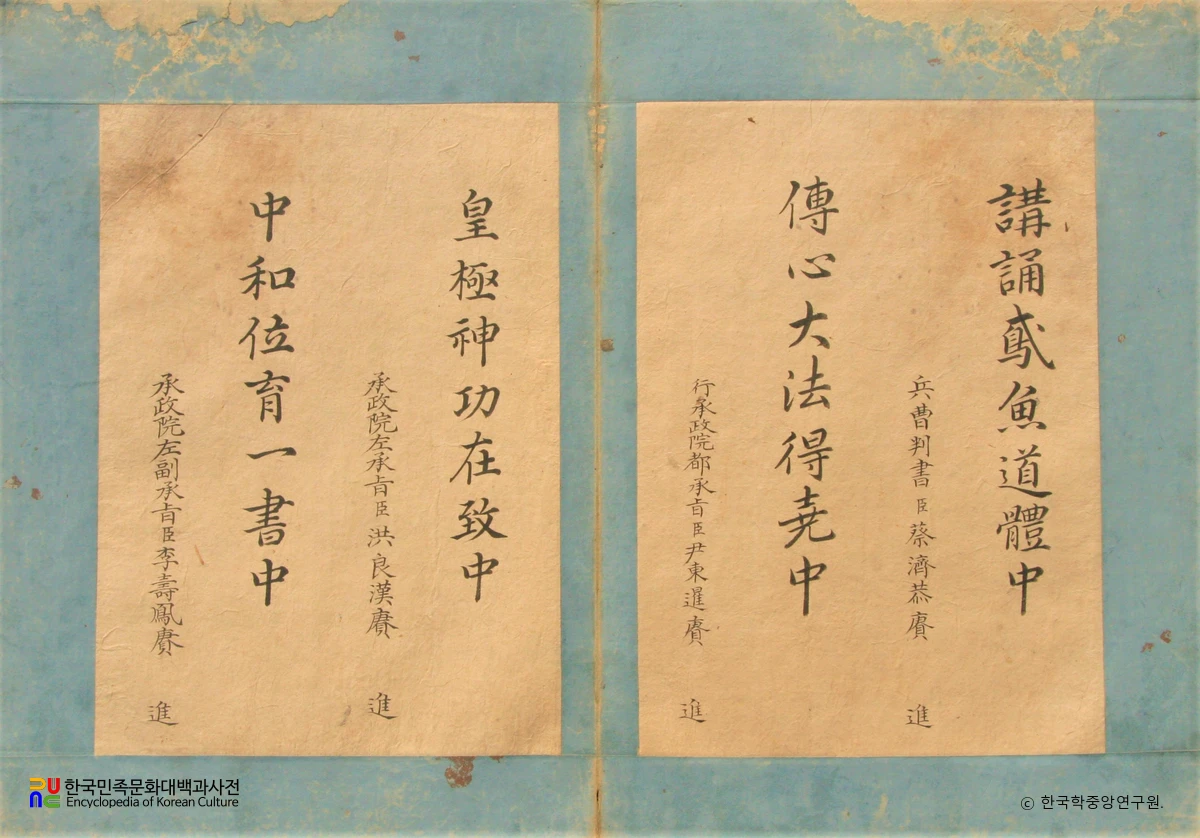 講誦鳶魚道體中
兵曹判書臣蔡濟恭賡 進
傳心大法得堯中
行承政院都承旨臣尹東暹賡 進
皇極神功在致中
承政院左承旨臣洪良漢賡 進
中和位育一書中
承政院左副承旨臣李壽鳳賡 進
한국민족문화대백과사전
Encyclopedia of Korean Culture
© 한국학중앙연구원.